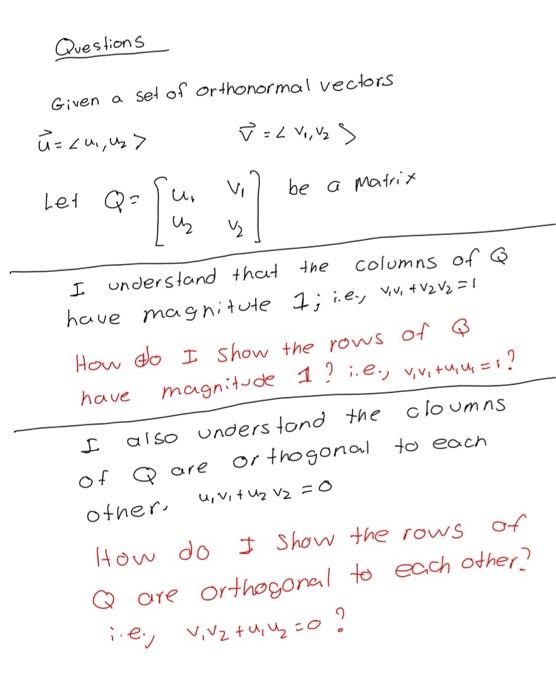 Questions
Given a set of orthonormal vectors
u⃗ = < u₁, u₂ > v⃗ = < v₁, v₂ >
Let Q = [ u₁ v₁ be a matrix
u₂ v₂ ]
I understand that the columns of Q
have magnitute 1; i.e., v₁v₁ + v₂v₂ = 1
How do I show the rows of Q
have magnitude 1? i.e., v₁v₁ + u₁u₁ = 1?
I also understand the cloumns
of Q are orthogonal to each
other. u₁v₁ + u₂v₂ = 0
How do I show the rows of
Q are orthogonal to each other?
i.e., v₁v₂ + u₁u₂ = 0?